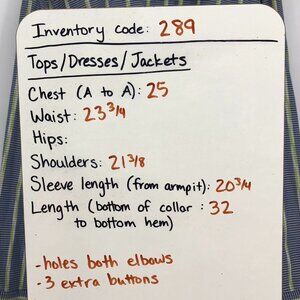 Inventory code: 289
Tops/Dresses/Jackets
Chest (A to A): 25
Waist: 23 3/4
Hips:
Shoulders: 21 3/8
Sleeve length (from armpit): 20 3/4
Length (bottom of collar : 32
to bottom hem)
-holes both elbows
-3 extra buttons